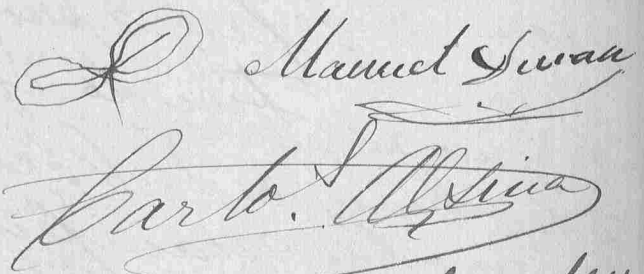 Manuel Duran
Carlos Alsina